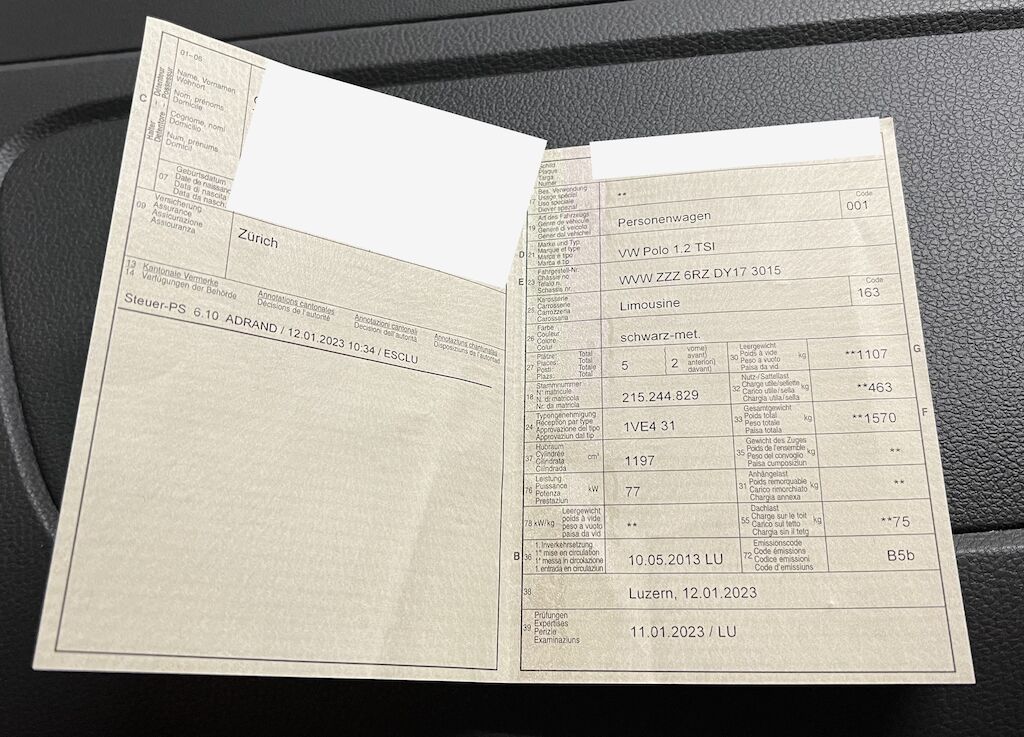 01–06
C
Halter – Détenteur
Detentore – Possessur
Name, Vornamen
Wohnort
Nom, prénoms
Domicile
Cognome, nomi
Domicilio
Num, prenums
Domicil
07
Geburtsdatum
Date de naissance
Data di nascita
Data da nasch.
09
Versicherung
Assurance
Assicurazione
Assicuranza
Zürich
13 Kantonale Vermerke
14 Verfügungen der Behörde
Annotations cantonales
Décisions de l'autorité
Annotazioni cantonali
Decisioni dell'autorità
Annotaziuns chantunalas
Disposiziuns da l'autoritad
Steuer-PS 6.10 ADRAND / 12.01.2023 10:34 / ESCLU
Schild
Plaque
Targa
Numer
Bes. Verwendung
Usage spécial
Uso speciale
Diever spezial
**
19
Art des Fahrzeugs
Genre de véhicule
Genere di veicolo
Gener dal vehichel
Personenwagen
Code
001
D 21
Marke und Typ
Marque et type
Marca e tipo
Marca e tip
VW Polo 1.2 TSI
E 23
Fahrgestell-Nr.
Châssis no
Telaio n.
Schassis nr.
WVW ZZZ 6RZ DY17 3015
25
Karosserie
Carrosserie
Carrozzeria
Carossaria
Limousine
Code
163
26
Farbe
Couleur
Colore
Colur
schwarz-met.
27
Plätze: Total
Places: Total
Posti: Totale
Plazs: Total
5
2
vorne)
avant)
anteriori)
davant)
30
Leergewicht
Poids à vide
Peso a vuoto
Paisa da vid
kg
**1107
G
18
Stammnummer
N° matricule
N. di matricola
Nr. da matricla
215.244.829
32
Nutz-/Sattellast
Charge utile/sellette
Carico utile/sella
Chargia utila/sella
kg
**463
24
Typengenehmigung
Réception par type
Approvazione del tipo
Approvaziun dal tip
1VE4 31
33
Gesamtgewicht
Poids total
Peso totale
Paisa totala
kg
**1570
F
37
Hubraum
Cylindrée
Cilindrata
Cilindrada
cm³
1197
35
Gewicht des Zuges
Poids de l'ensemble
Peso del convoglio
Paisa cumposiziun
kg
**
76
Leistung
Puissance
Potenza
Prestaziun
kW
77
31
Anhängelast
Poids remorquable
Carico rimorchiato
Chargia annexa
kg
**
78 kW/kg
Leergewicht
poids à vide
peso a vuoto
paisa da vid
**
55
Dachlast
Charge sur le toit
Carico sul tetto
Chargia sin il tetg
kg
**75
B 36
1. Inverkehrsetzung
1re mise en circulation
1a messa in circolazione
1. entrada en circulaziun
10.05.2013 LU
72
Emissionscode
Code émissions
Codice emissioni
Code d'emissiuns
B5b
38
Luzern, 12.01.2023
39
Prüfungen
Expertises
Perizie
Examinaziuns
11.01.2023 / LU